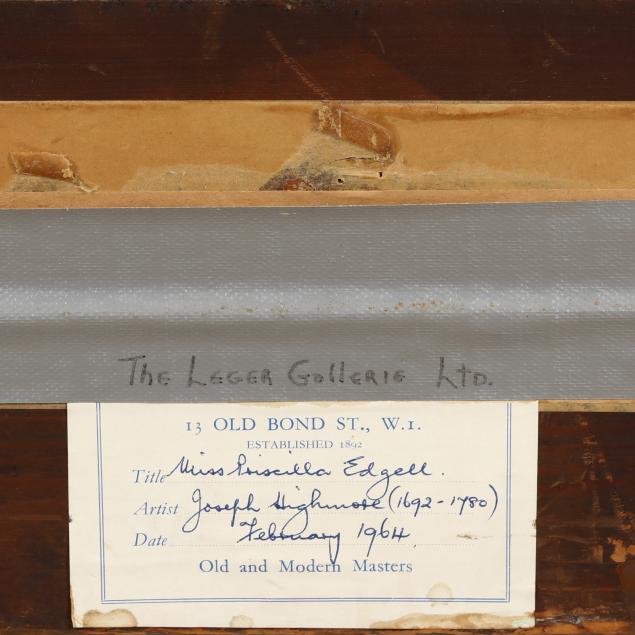 THE LEGER GALLERIE LTD.
13 OLD BOND ST., W.1.
ESTABLISHED 1892
Title Miss Priscilla Edgell.
Artist Joseph Highmore (1692-1780)
Date February 1964.
Old and Modern Masters